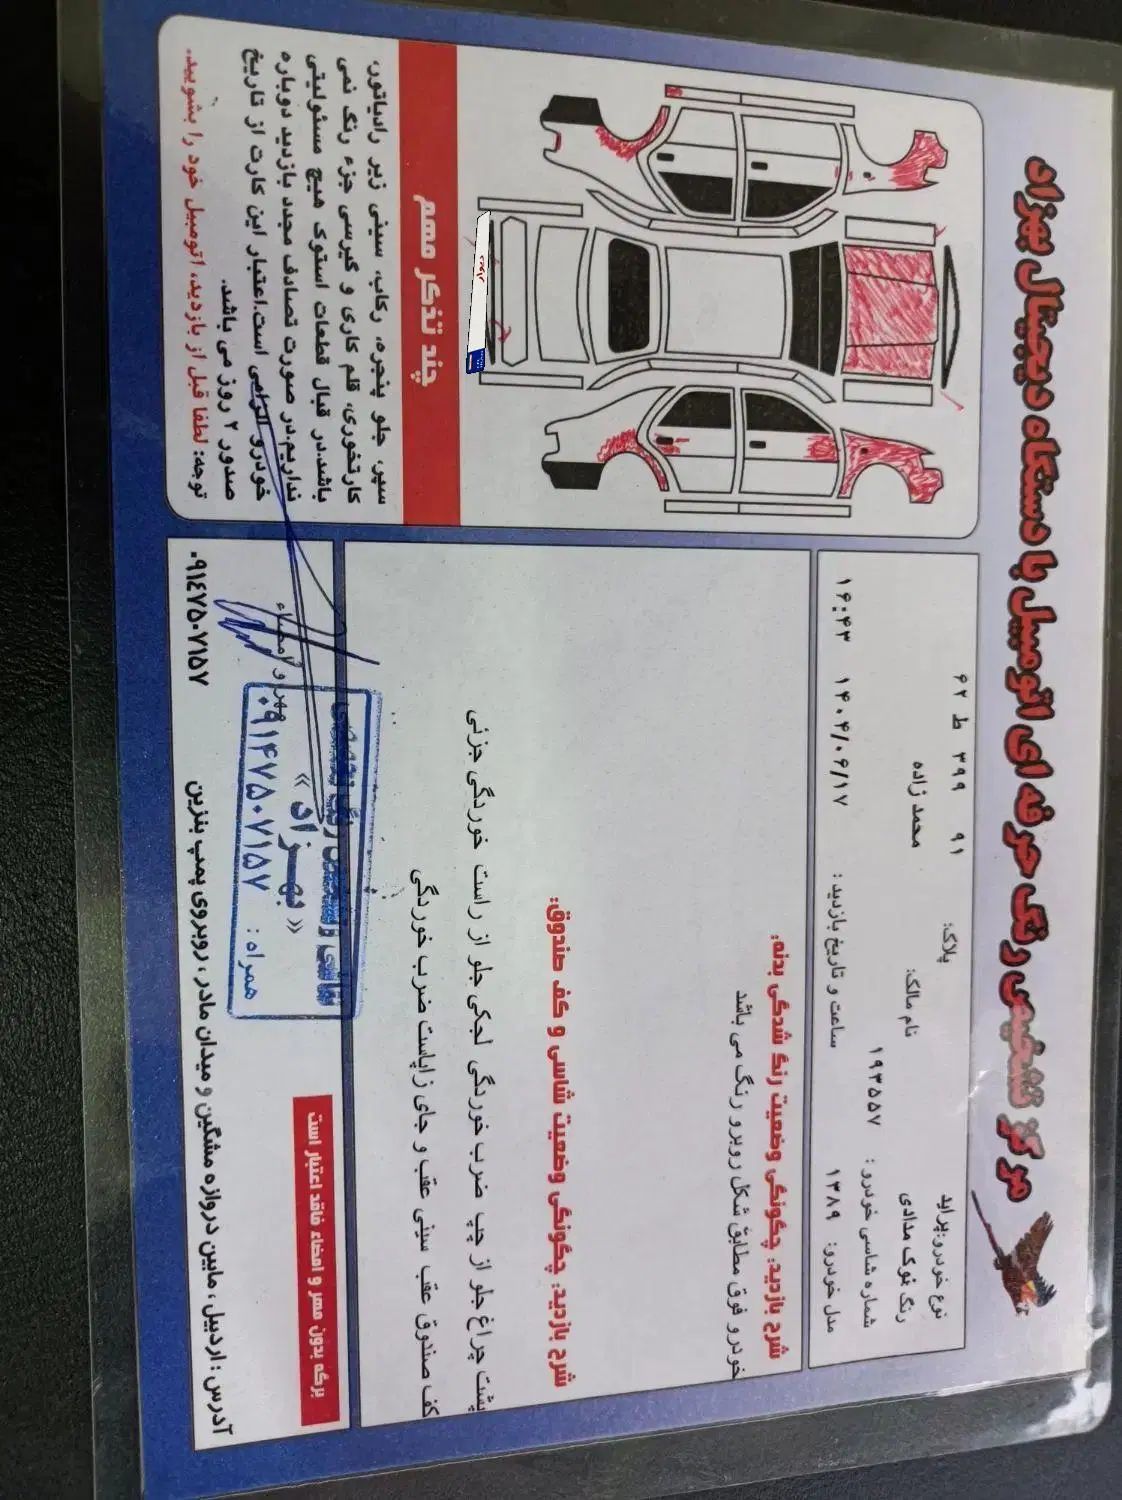 مرکز تشخیص رنگ حرفه ای اتومبیل با دستگاه دیجیتال بهزاد
نوع خودرو:پراید
پلاک: ۶۲ ط ۳۹۹ ۹۱
رنگ :نوک مدادی
نام مالک: محمد زاده
شماره شاسی خودرو : ۱۹۳۵۵۷
مدل خودرو: ۱۳۸۹
ساعت و تاریخ بازدید : ۱۴۰۴/۰۶/۱۷ ۱۶:۴۳
شرح بازدید: چگونگی وضعیت رنگ شدگی بدنه:
خودرو فوق مطابق شکل روبرو رنگ می باشد
شرح بازدید: چگونگی وضعیت شاسی و کف صندوق:
پشت چراغ جلو از چپ ضرب خوردگی لچکی جلو از راست خوردگی جزئی
کف صندوق عقب سینی عقب و جای زاپاست ضرب خوردگی
برگه بدون مهر و امضاء فاقد اعتبار است
مهر و امضاء
« بهــزاد »
همراه : ۰۹۱۴۷۵۰۷۱۵۷
آدرس : اردبیل ، مابین دروازه مشگین و میدان مادر ، روبروی پمپ بنزین
۰۹۱٤۷۵۰۷۱۵۷
چند تذکر مهم
سپر، جلو پنجره، رکاب، سینی زیر رادیاتور،
کارتخوری، قلم کاری و گیرسی جزء رنگ نمی
باشد.در قبال قطعات استوک هیچ مسئولیتی
نداریم.در صورت تصادف مجدد بازدید دوباره
خودرو الزامی است.اعتبار این کارت از تاریخ
صدور ۲ روز می باشد.
توجه: لطفا قبل از بازدید، اتومبیل خود را بشویید.